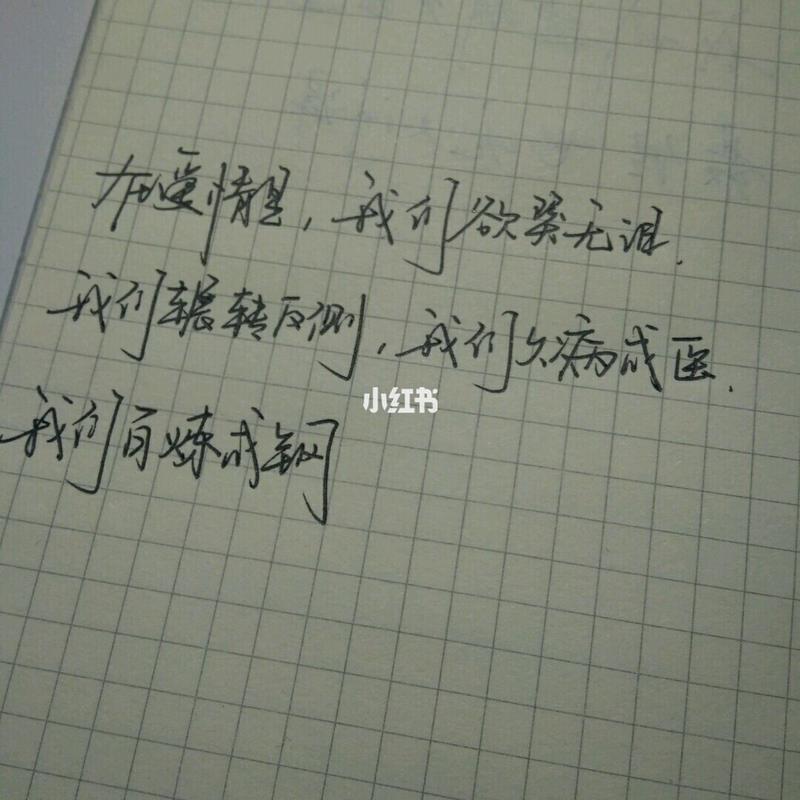 在爱情里，我们欲哭无泪.
我们辗转反侧，我们久病成医.
小红书
我们百炼成钢